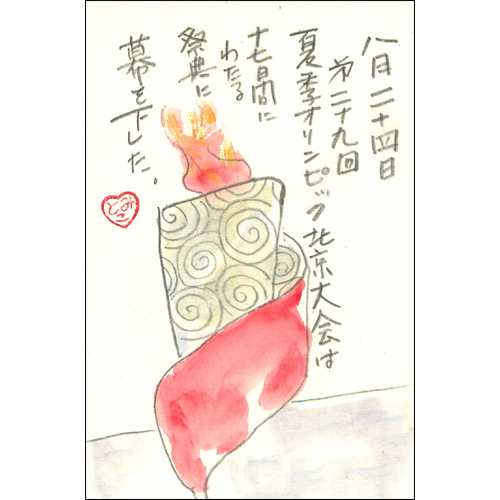 八月二十四日
第二十九回
夏季オリンピック北京大会は
十七日間に
わたる
祭典に
幕を下した。
とみこ